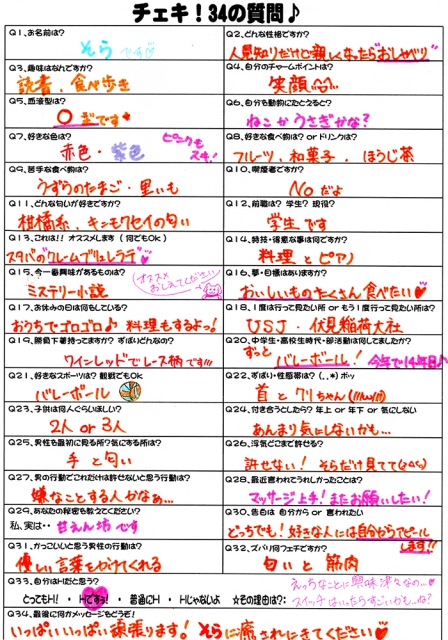 チェキ！34の質問♪
Q1、お名前は？
そらです♡
Q2、どんな性格ですか？
人見知りだけど親しくなったらおしゃべり
Q3、趣味はなんですか？
読書、食べ歩き
Q4、自分のチャームポイントは？
笑顔
Q5、血液型は？
O型です
Q6、自分を動物にたとえると？
ねこかうさぎかな？
Q7、好きな色は？
赤色・紫色
ピンクもスキ！
Q8、好きな食べ物は？orドリンクは？
フルーツ、和菓子、ほうじ茶
Q9、苦手な食べ物は？
うずらのたまご・里いも
Q10、喫煙者ですか？
Noだよ
Q11、どんな匂いが好きですか？
柑橘系、キンモクセイの匂い
Q12、前職は？学生？現役？
学生です
Q13、これは！！オススメします（何でもOk）
スタバのクレームブリュレラテ♥
Q14、特技・得意な事は何ですか？
料理とピアノ
Q15、今一番興味があるものは？
ミステリー小説
オススメおしえてください
Q16、夢・目標はありますか？
おいしいものたくさん食べたい♥
Q17、お休みの日は何をしている？
おうちでゴロゴロ♪料理もするよっ！
Q18、1度行って見たい所 もう1度行って見たい所は？
USJ・伏見稲荷大社
Q19、勝負下着持ってますか？ずばりどんなの？
ワインレッドでレース柄です!!!
Q20、中学生・高校生時代・部活動は何してましたか？
ずっとバレーボール！今年で14年目♪
Q21、好きなスポーツは？観戦でもOk
バレーボール
Q22、ずばい・性感帯は？(,,*)ポッ
首とクリちゃん
Q23、子供は何人ぐらいほしい？
2人or3人
Q24、付き合うとしたら？年上or年下or気にしない
あんまり気にしないかも…
Q25、男性を最初に見る所？気にする所は？
手と匂い
Q26、浮気どこまで許せる？
許せない！そらだけ見てて
Q27、男の行動でこれだけは許せないと思う行動は？
嫌なことする人かなぁ…
Q28、最近言われてうれしかったことは？
マッサージ上手！またお願いしたい！
Q29、あなたの秘密を教えてください？
私、実は・・甘えん坊です
Q30、告白は自分からor言われたい
どっちでも！好きな人には自分からアピールします!!
Q31、かっこいいと思う男性の行動は？
優しい言葉をかけてくれる
Q32、ズバリ何フェチですか？
匂いと筋肉
Q33、自分はHだと思う？
えっちなことに興味津々なの…♡
とってもH！・Hですぅ！・普通にH・Hじゃないよ 女その理由は？:スイッチはいったらすごいかも…ね？
Q34、最後に何かメッセージもどうぞ！
いっぱいいっぱい頑張ります！そらに癒されにきてください♡